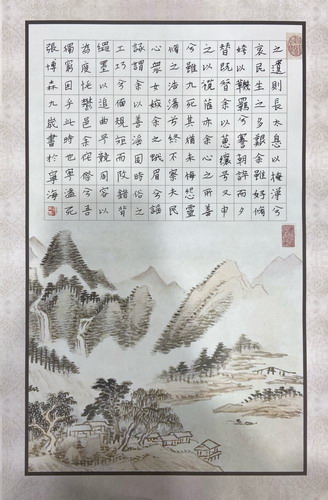 之遺則長太息以掩涕兮
哀民生之多艱余雖好脩
姱以鞿羈兮謇朝誶而夕
替既替余以蕙纕兮又申
之以攬茝亦余心之所善
兮雖九死其猶未悔怨靈
脩之浩蕩兮終不察夫民
心眾女嫉余之蛾眉兮謠
諑謂余以善淫固時俗之
工巧兮偭規矩而改錯背
繩墨以追曲兮競周容以
為度忳鬱邑余侘傺兮吾
獨窮困乎此時也寧溘死
張博森九歲書於寧海